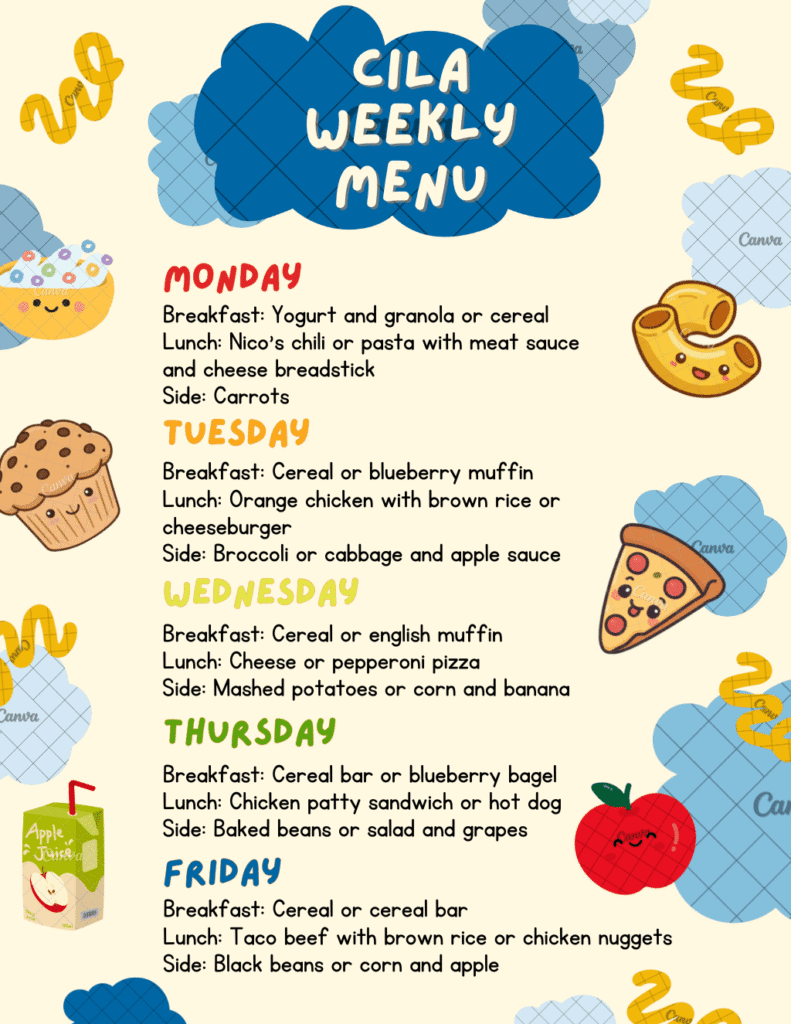 CILA
WEEKLY
MENU
MONDAY
Breakfast: Yogurt and granola or cereal
Lunch: Nico's chili or pasta with meat sauce
and cheese breadstick
Side: Carrots
TUESDAY
Breakfast: Cereal or blueberry muffin
Lunch: Orange chicken with brown rice or
cheeseburger
Side: Broccoli or cabbage and apple sauce
WEDNESDAY
Breakfast: Cereal or english muffin
Lunch: Cheese or pepperoni pizza
Side: Mashed potatoes or corn and banana
THURSDAY
Breakfast: Cereal bar or blueberry bagel
Lunch: Chicken patty sandwich or hot dog
Side: Baked beans or salad and grapes
Apple
Juice
FRIDAY
Breakfast: Cereal or cereal bar
Lunch: Taco beef with brown rice or chicken nuggets
Side: Black beans or corn and apple
Canva
Canva
Canva
Canva